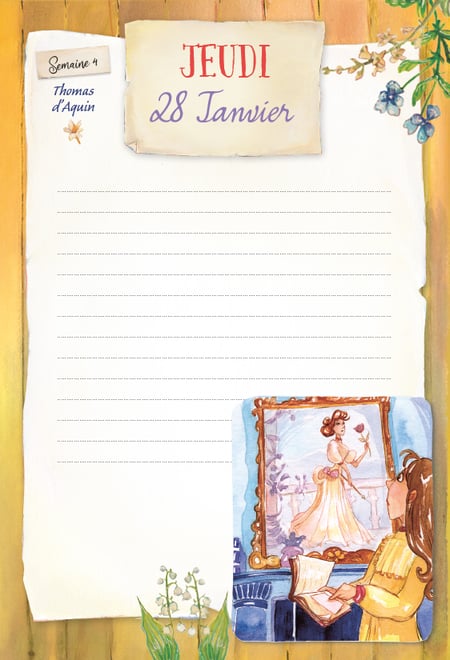 Semaine 4
JEUDI
28 Janvier
Thomas
d'Aquin